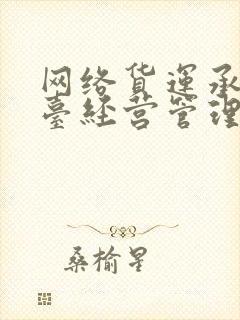 网络货運承
臺经营管理
桑榆星